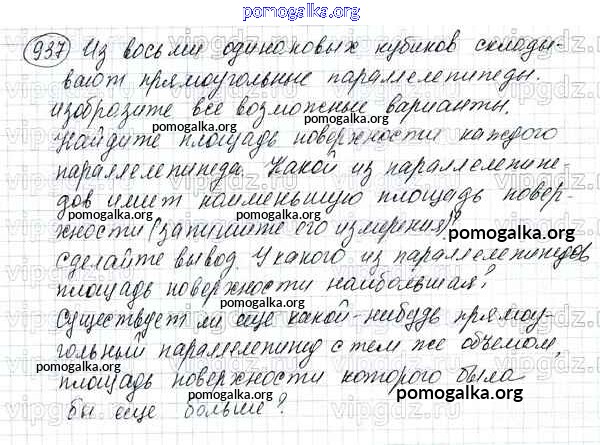 pomogalka.org
937 Из восьми одинаковых кубиков склады-
вают прямоугольные параллелепипеды.
Изобразите все возможные варианты.
pomogalka.org pomogalka.org
Найдите площадь поверхности каждого
pomogalka.org
параллелепипеда. Какой из параллелепипе-
pomogalka.org
дов имеет наименьшую площадь повер-
pomogalka.org pomogalka.org
хности (запишите его измерения)?
pomogalka.org
Сделайте вывод У какого из параллелепипедов
площадь поверхности наибольшая?
pomogalka.org
Существует ли еще какой-нибудь прямоу-
гольный параллелепипед с тем же объемом,
pomogalka.org
площадь поверхности которого была
pomogalka.org
бы еще больше?